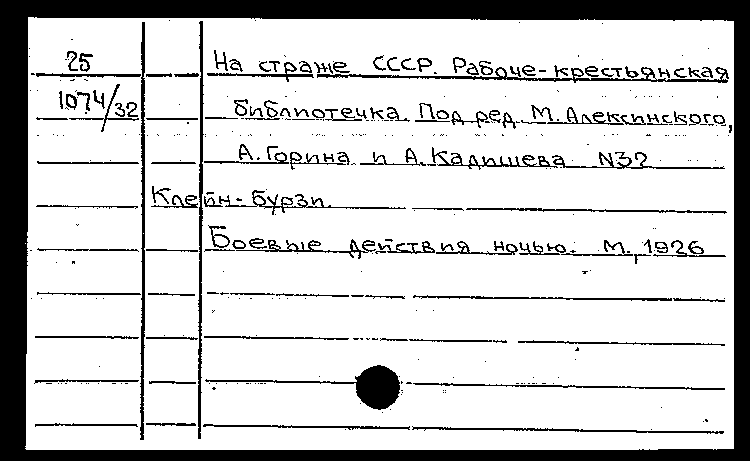 25 На страже СССР. Рабоче-крестьянская
1074/32 библиотечка. Под ред. М. Алексинского,
А. Горина и А. Кадишева N32
Клейн-Бурзи.
Боевые действия ночью. М., 1926